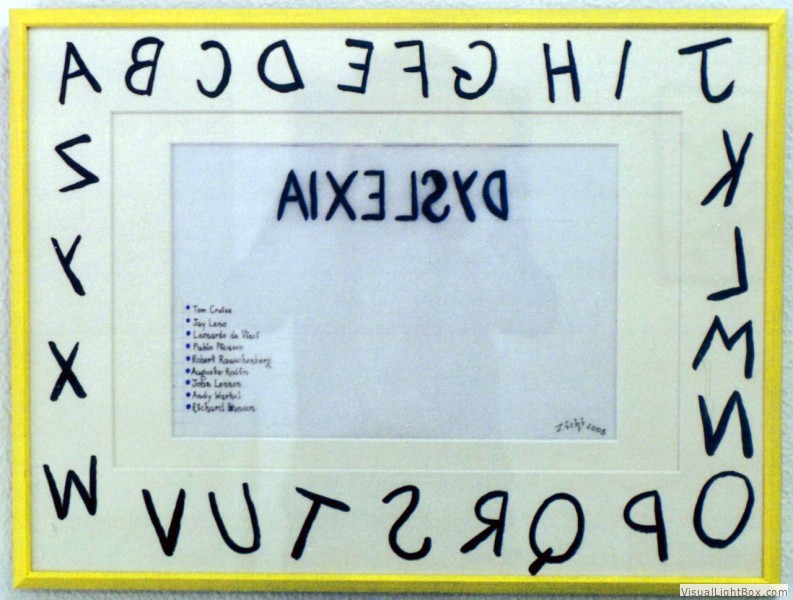 A B C D E F G H I J
K
L
M
N
O
P
Q
R
S
T
U
V
W
X
Y
Z
DYSLEXIA
• Tom Cruise
• Jay Leno
• Leonardo da Vinci
• Pablo Picasso
• Robert Rauschenberg
• Auguste Rodin
• John Lennon
• Andy Warhol
• Richard Branson
2008
VisualLightBox.com